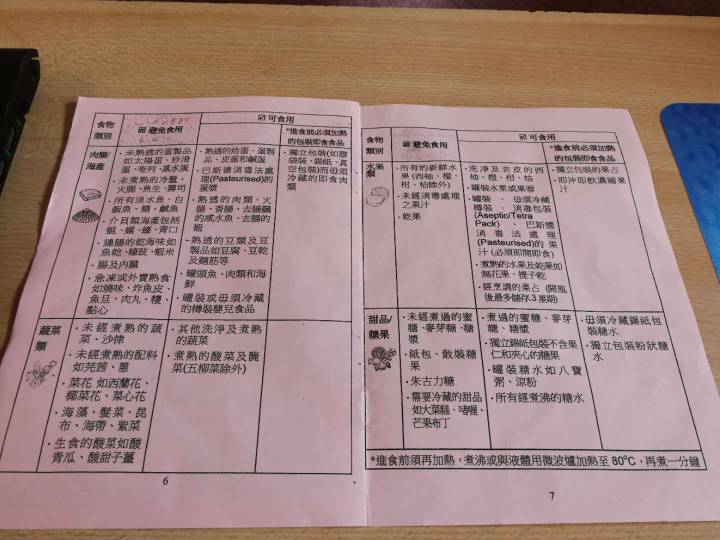 食物
類別
☑避免食用
☑可食用
*進食前必須加熱
的包裝即食食品
肉類/
海產
·未熟透的蛋製品
如太陽蛋、炒滑
蛋、班列、蒸水蛋
·未煮熟的冷盤、
火腿、魚生、壽司
·所有淡水魚、白
飯魚、鯖、鹹魚
·介貝類海產包括
蜆、螺、蠔、青口
·連腸的乾海味如
魚乾、蠔豉、蝦米
·腸及內臟
·急凍或外賣熟食
如燒味、炸魚皮、
魚旦、肉丸、糭、
點心
·熟透的焓蛋、蛋製
品、皮蛋和鹹蛋
·巴斯德消毒法處
理(Pasteurised)的
蛋漿
·熟透的肉類、火
腿、香腸、去腸臟
的咸水魚、去腸的
蝦
·熟透的豆類及豆
製品如豆腐、豆乾
及麵筋等
·罐頭魚、肉類和海
鮮
·罐裝或毋須冷藏
的樽裝嬰兒食品
·獨立包裝(如膠
袋裝、錫紙、真
空包裝)而毋須
冷藏的即食肉
類
蔬菜
類
·未經煮熟的蔬
菜、沙律
·未經煮熟的配料
如芫茜、蔥
·菜花 如西蘭花、
椰菜花、菜心花
·海藻、髮菜、昆
布、海帶、紫菜
·生食的酸菜如酸
青瓜、酸甜子薑
·其他洗淨及煮熟
的蔬菜
·煮熟的酸菜及醃
菜(五柳菜除外)
6
食物
類別
☑避免食用
☑可食用
*進食前必須加熱
的包裝即食食品
水果
類
·所有的新鮮水
果(西柚、橙、
柑、桔除外)
·未經消毒處理
之果汁
·乾果
·洗淨及去皮的西
柚、橙、柑、桔
·罐裝水果或果蓉
·罐裝、毋須冷藏
樽裝、消毒包裝
(Aseptic/Tetra
Pack)、巴斯德
消毒法處理
(Pasteurised)的果
汁(必須即開即食)
·煮熟的水果及乾果如
無花果、提子乾
·經烹調的果占(開瓶
後最多儲存3星期)
·獨立包裝的果占
·即沖即飲濃縮果
汁
甜品/
糖果
·未經煮過的蜜
糖、麥芽糖、糖
漿
·紙包、散裝糖
果
·朱古力糖
·需要冷藏的甜品
如大菜糕、啫喱、
芒果布丁
·煮過的蜜糖、麥芽
糖、糖漿
·獨立錫紙包裝不含果
仁和夾心的糖果
·罐裝糖水如八寶
粥、涼粉
·所有經煮沸的糖水
·毋須冷藏錫紙包
裝糖水
·獨立包裝粉狀糖
水
*進食前須再加熱，煮沸或與液體用微波爐加熱至80°C，再煮一分鐘
7